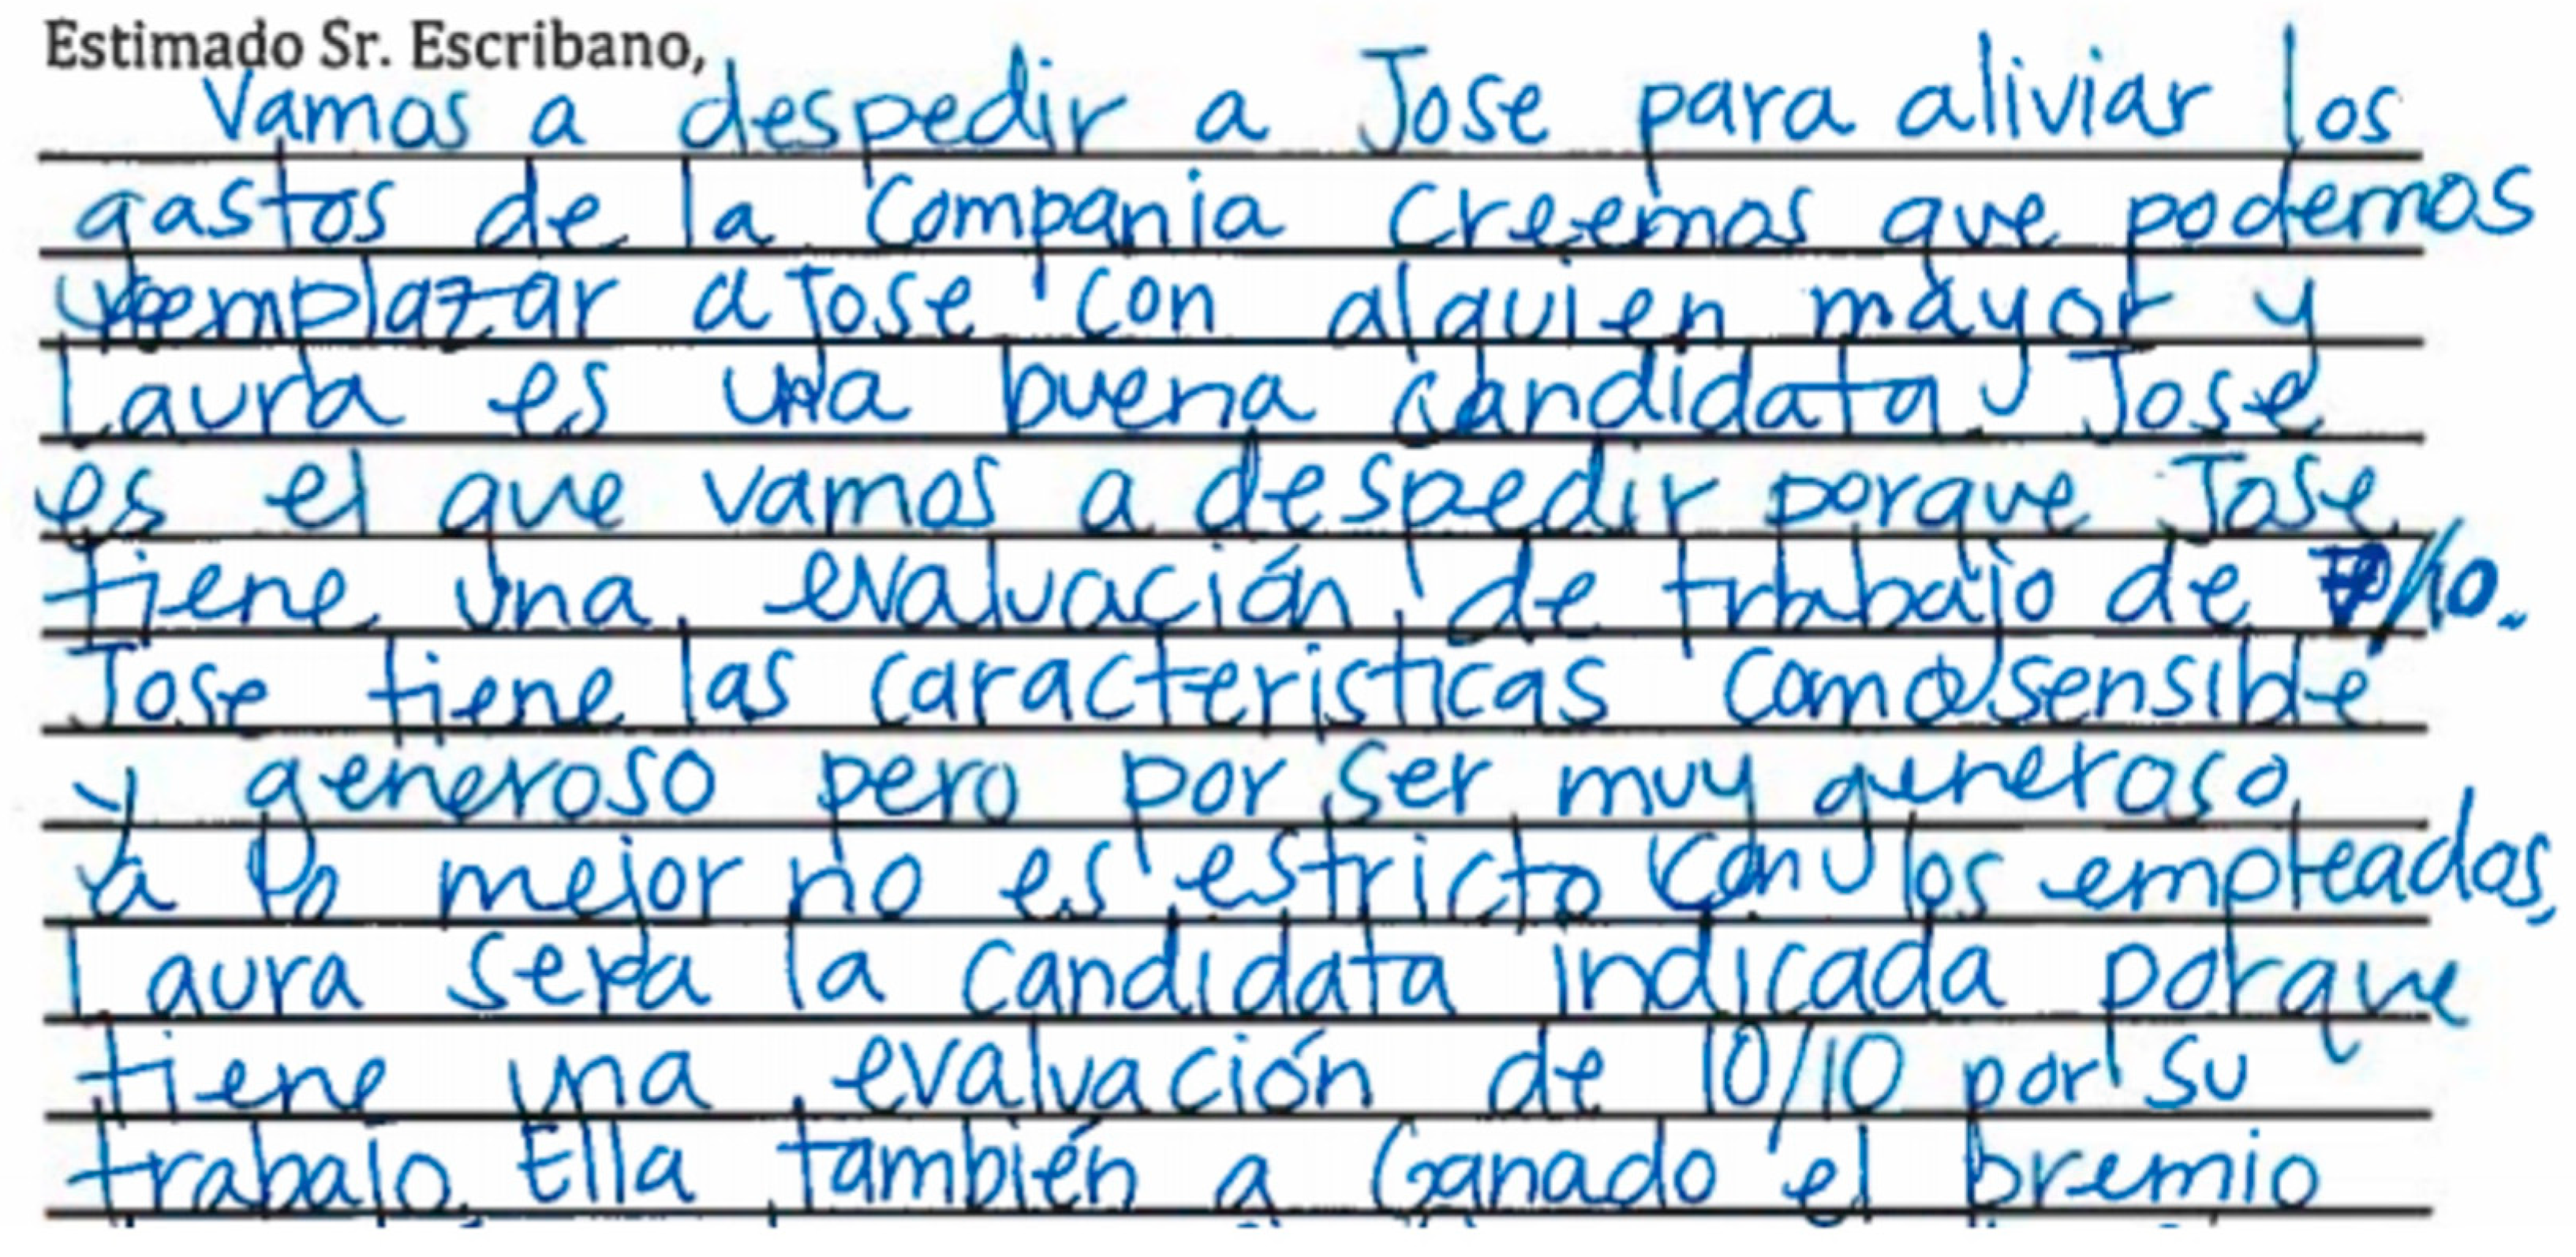 Estimado Sr. Escribano,
Vamos a despedir a Jose para aliviar los
gastos de la compania creemos que podemos
reemplazar a Jose con alguien mayor y
Laura es una buena candidata. Jose
es el que vamos a despedir porque Jose
tiene una evaluación de trabajo de /10.
Jose tiene las caracteristicas como sensible
y generoso pero por ser muy generoso
a lo mejor no es estricto con los empleados,
Laura sera la candidata indicada porque
tiene una evaluación de 10/10 por su
trabajo. Ella también a Ganado el premio